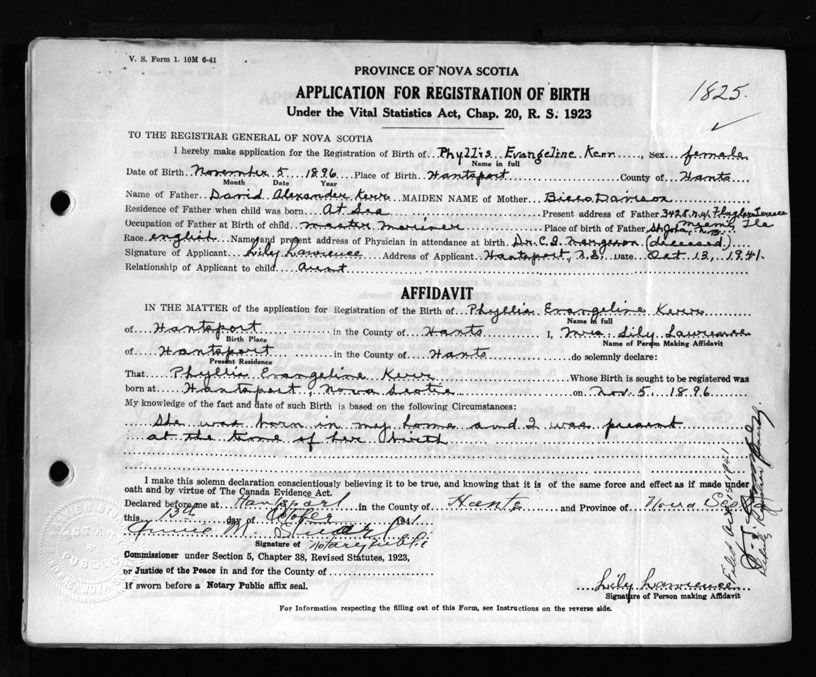 V. S. Form 1. 10M 6-41
PROVINCE OF NOVA SCOTIA
APPLICATION FOR REGISTRATION OF BIRTH
Under the Vital Statistics Act, Chap. 20, R. S. 1923
1825.
TO THE REGISTRAR GENERAL OF NOVA SCOTIA
I hereby make application for the Registration of Birth of Phyllis Evangeline Kerr, Sex female
Name in full
Date of Birth November 5 1896 Place of Birth Hantsport County of Hants
Month Date Year
Name of Father David Alexander Kerr MAIDEN NAME of Mother Davison
Residence of Father when child was born At Sea Present address of Father 3428 N.W. Flagler Terrace
Miami Fla
Occupation of Father at Birth of child master Mariner Place of birth of Father St. John, N.B.
Race english Name and present address of Physician in attendance at birth Dr. C. I. Margeson (deceased)
Signature of Applicant Lily Lawrence Address of Applicant Hantsport, N.S. Date Oct 13, 1941.
Relationship of Applicant to child Aunt
AFFIDAVIT
IN THE MATTER of the application for Registration of the Birth of Phyllis Evangeline Kerr
Name in full
of Hantsport in the County of Hants I, Mrs. Lily Lawrence
Birth Place Name of Person Making Affidavit
of Hantsport in the County of Hants do solemnly declare:
Present Residence
That Phyllis Evangeline Kerr Whose Birth is sought to be registered was
born at Hantsport, Nova Scotia on Nov. 5, 1896
My knowledge of the fact and date of such Birth is based on the following Circumstances:
She was born in my home and I was present
at the time of her birth
I make this solemn declaration conscientiously believing it to be true, and knowing that it is of the same force and effect as if made under
oath and by virtue of The Canada Evidence Act.
Declared before me at Hantsport in the County of Hants and Province of Nova Scotia
this 13th day of October 1941
Annie M.
Signature of Notary Public
Commissioner under Section 5, Chapter 38, Revised Statutes, 1923,
or Justice of the Peace in and for the County of
If sworn before a Notary Public affix seal.
Lily Lawrence
Signature of Person making Affidavit
For Information respecting the filling out of this Form, see Instructions on the reverse side.